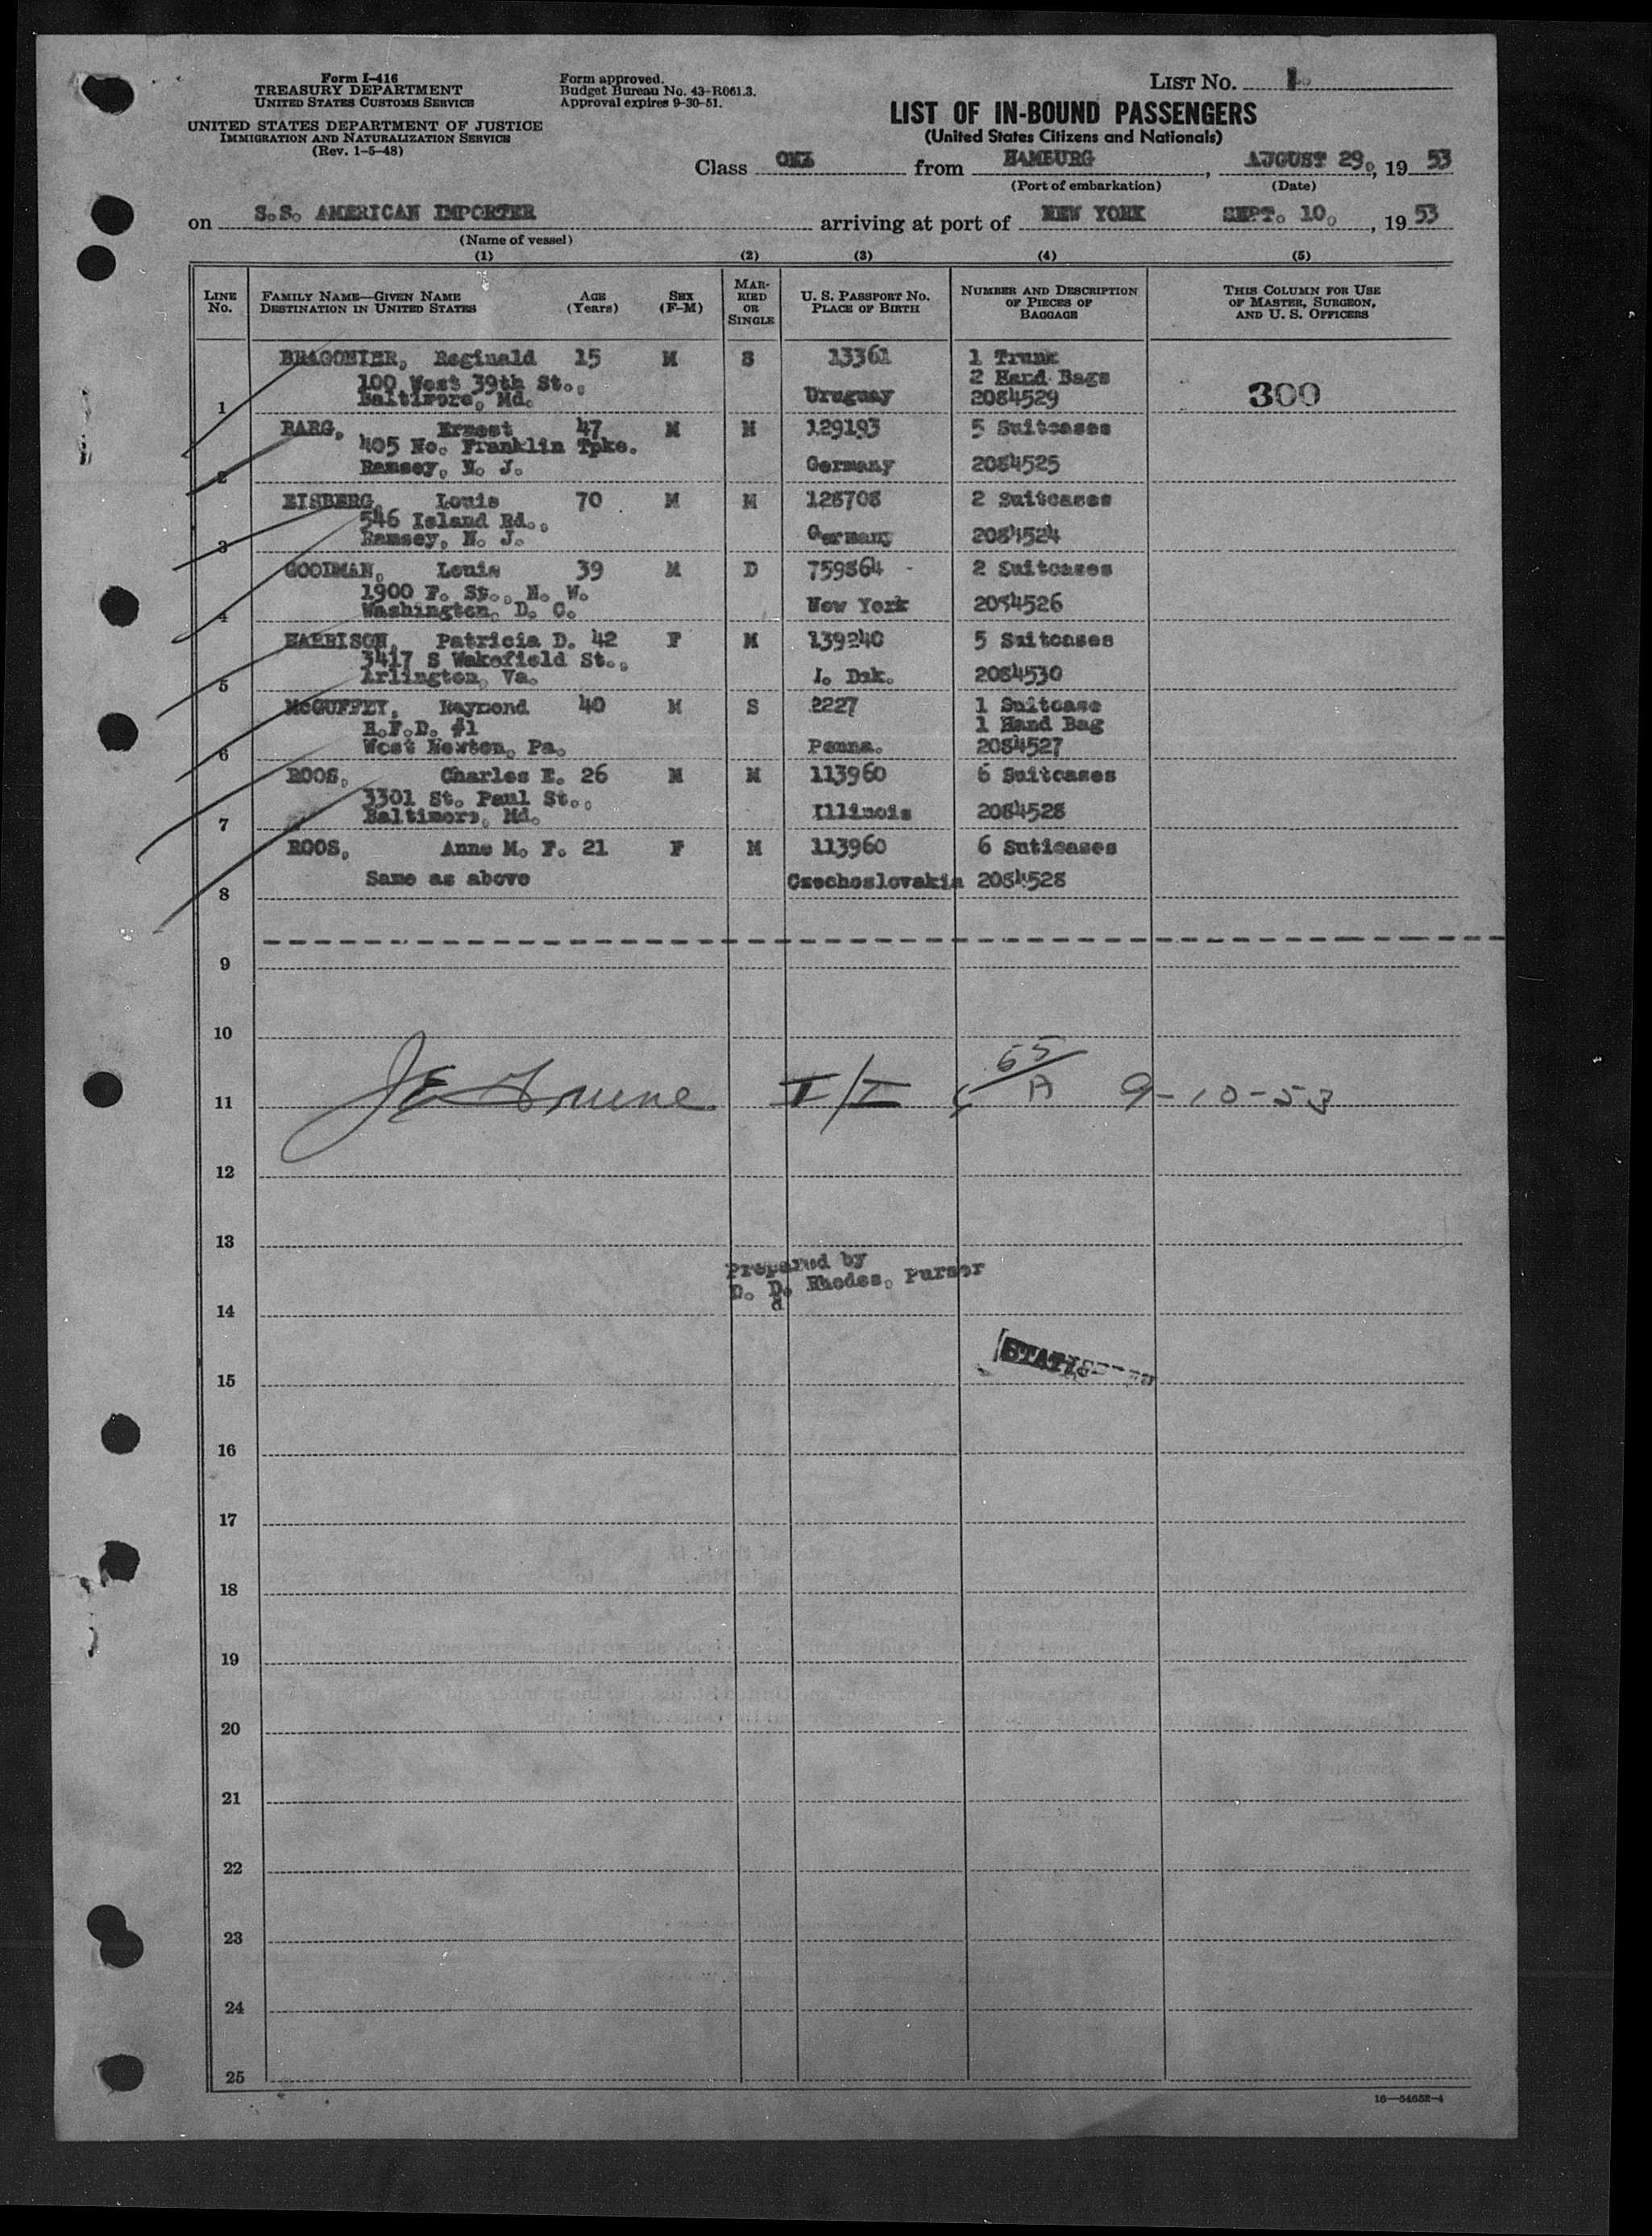 Form I-416
TREASURY DEPARTMENT
UNITED STATES CUSTOMS SERVICE
UNITED STATES DEPARTMENT OF JUSTICE
IMMIGRATION AND NATURALIZATION SERVICE
(Rev. 1-5-48)
Form approved.
Budget Bureau No. 43-R061.3.
Approval expires 9-30-51.
LIST No. 1
LIST OF IN-BOUND PASSENGERS
(United States Citizens and Nationals)
Class ONE from HAMBURG, AUGUST 29, 1953
(Port of embarkation) (Date)
on S.S. AMERICAN IMPORTER arriving at port of NEW YORK SEPT. 10, 1953
(Name of vessel)
(1) (2) (3) (4) (5)
LINE No. FAMILY NAME—GIVEN NAME DESTINATION IN UNITED STATES AGE (Years) SEX (F-M) MARRIED OR SINGLE U. S. PASSPORT NO. PLACE OF BIRTH NUMBER AND DESCRIPTION OF PIECES OF BAGGAGE THIS COLUMN FOR USE OF MASTER, SURGEON, AND U. S. OFFICERS
BRAGONIER, Reginald 15 M S 13361 1 Trunk
100 West 39th St., 2 Hand Bags
1 Baltimore, Md. Uruguay 2084529 300
BARG, Ernest 47 M M 129193 5 Suitcases
405 No. Franklin Tpke.
2 Ramsey, N. J. Germany 2084525
EISBERG, Louis 70 M M 128708 2 Suitcases
546 Island Rd.,
3 Ramsey, N. J. Germany 2084524
GOODMAN, Louis 39 M D 759864 - 2 Suitcases
1900 F. St., N. W.
4 Washington, D. C. New York 2084526
HARRISON, Patricia D. 42 F M 139240 5 Suitcases
3417 S Wakefield St.,
5 Arlington, Va. Dak. 2084530
McGUFFEY, Raymond 40 M S 2227 1 Suitcase
R.F.D. #1 1 Hand Bag
6 West Newton, Pa. Penna. 2084527
ROOS, Charles E. 26 M M 113960 6 Suitcases
3301 St. Paul St.,
7 Baltimore, Md. Illinois 2084528
ROOS, Anne M. F. 21 F M 113960 6 Suticases
8 Same as above Czechoslovakia 2084528
9
10
11 I/I 55 A 9-10-53
12
13
Prepared by
D. D. Rhodes, Purser
d
14
15
16
17
18
19
20
21
22
23
24
25
16—54652-4